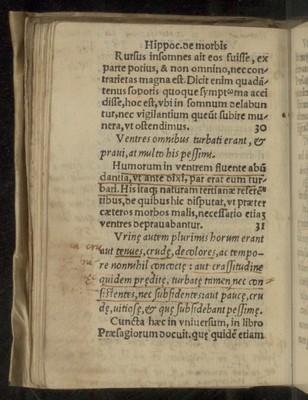 Hippoc. de morbis
Rursus insomnes ait eos fuisse, ex
parte potius, & non omnino, nec con-
trarietas magna est. Dicit enim quadã
tenus soporis quoque symptωma acci
disse, hoc est, vbi in somnum delabun
tur, nec vigilantium queũt subire mu-
nera, vt ostendimus. 30
Ventres omnibus turbati erant, &
praui, at multo his pessimè.
Humorum in ventrem fluente abũ
dantia, vt ante dixi, par erat eum tur-
bari. His itaq; naturam tertianæ referẽ
tibus, de quibus hic disputat, vt præter
cæteros morbos malis, necessario etiã
ventres deprauabantur. 31
Vrinę autem plurimis horum erant
aut tenues, crudę, decolores, ac tempo-
re nonnihil concoctę: aut crassitudine
quidem prędite, turbatę tamen, nec con
sistentes, nec subsidentes: aut paucę, cru
dę, uitiosę, & quę subsidebant pessimę.
Cuncta hæc in vniuersum, in libro
Præsagiorum docuit. quę quidẽ etiam